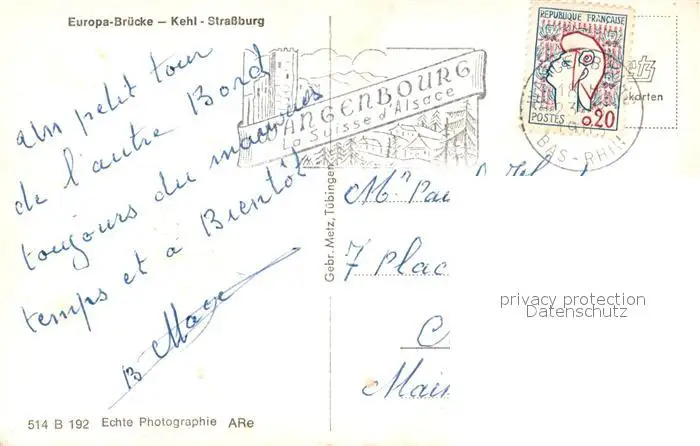 Europa-Brücke — Kehl - Straßburg
un petit tour
de l'autre Bord
toujours du mauvais
temps et à Bientôt
514 B 192 Echte Photographie ARe
Gebr. Metz, Tübingen
WANGENBOURG
La Suisse d'Alsace
REPUBLIQUE FRANÇAISE
POSTES 0,20
BAS-RHIN
karten
7 Plac
privacy protection
Datenschutz